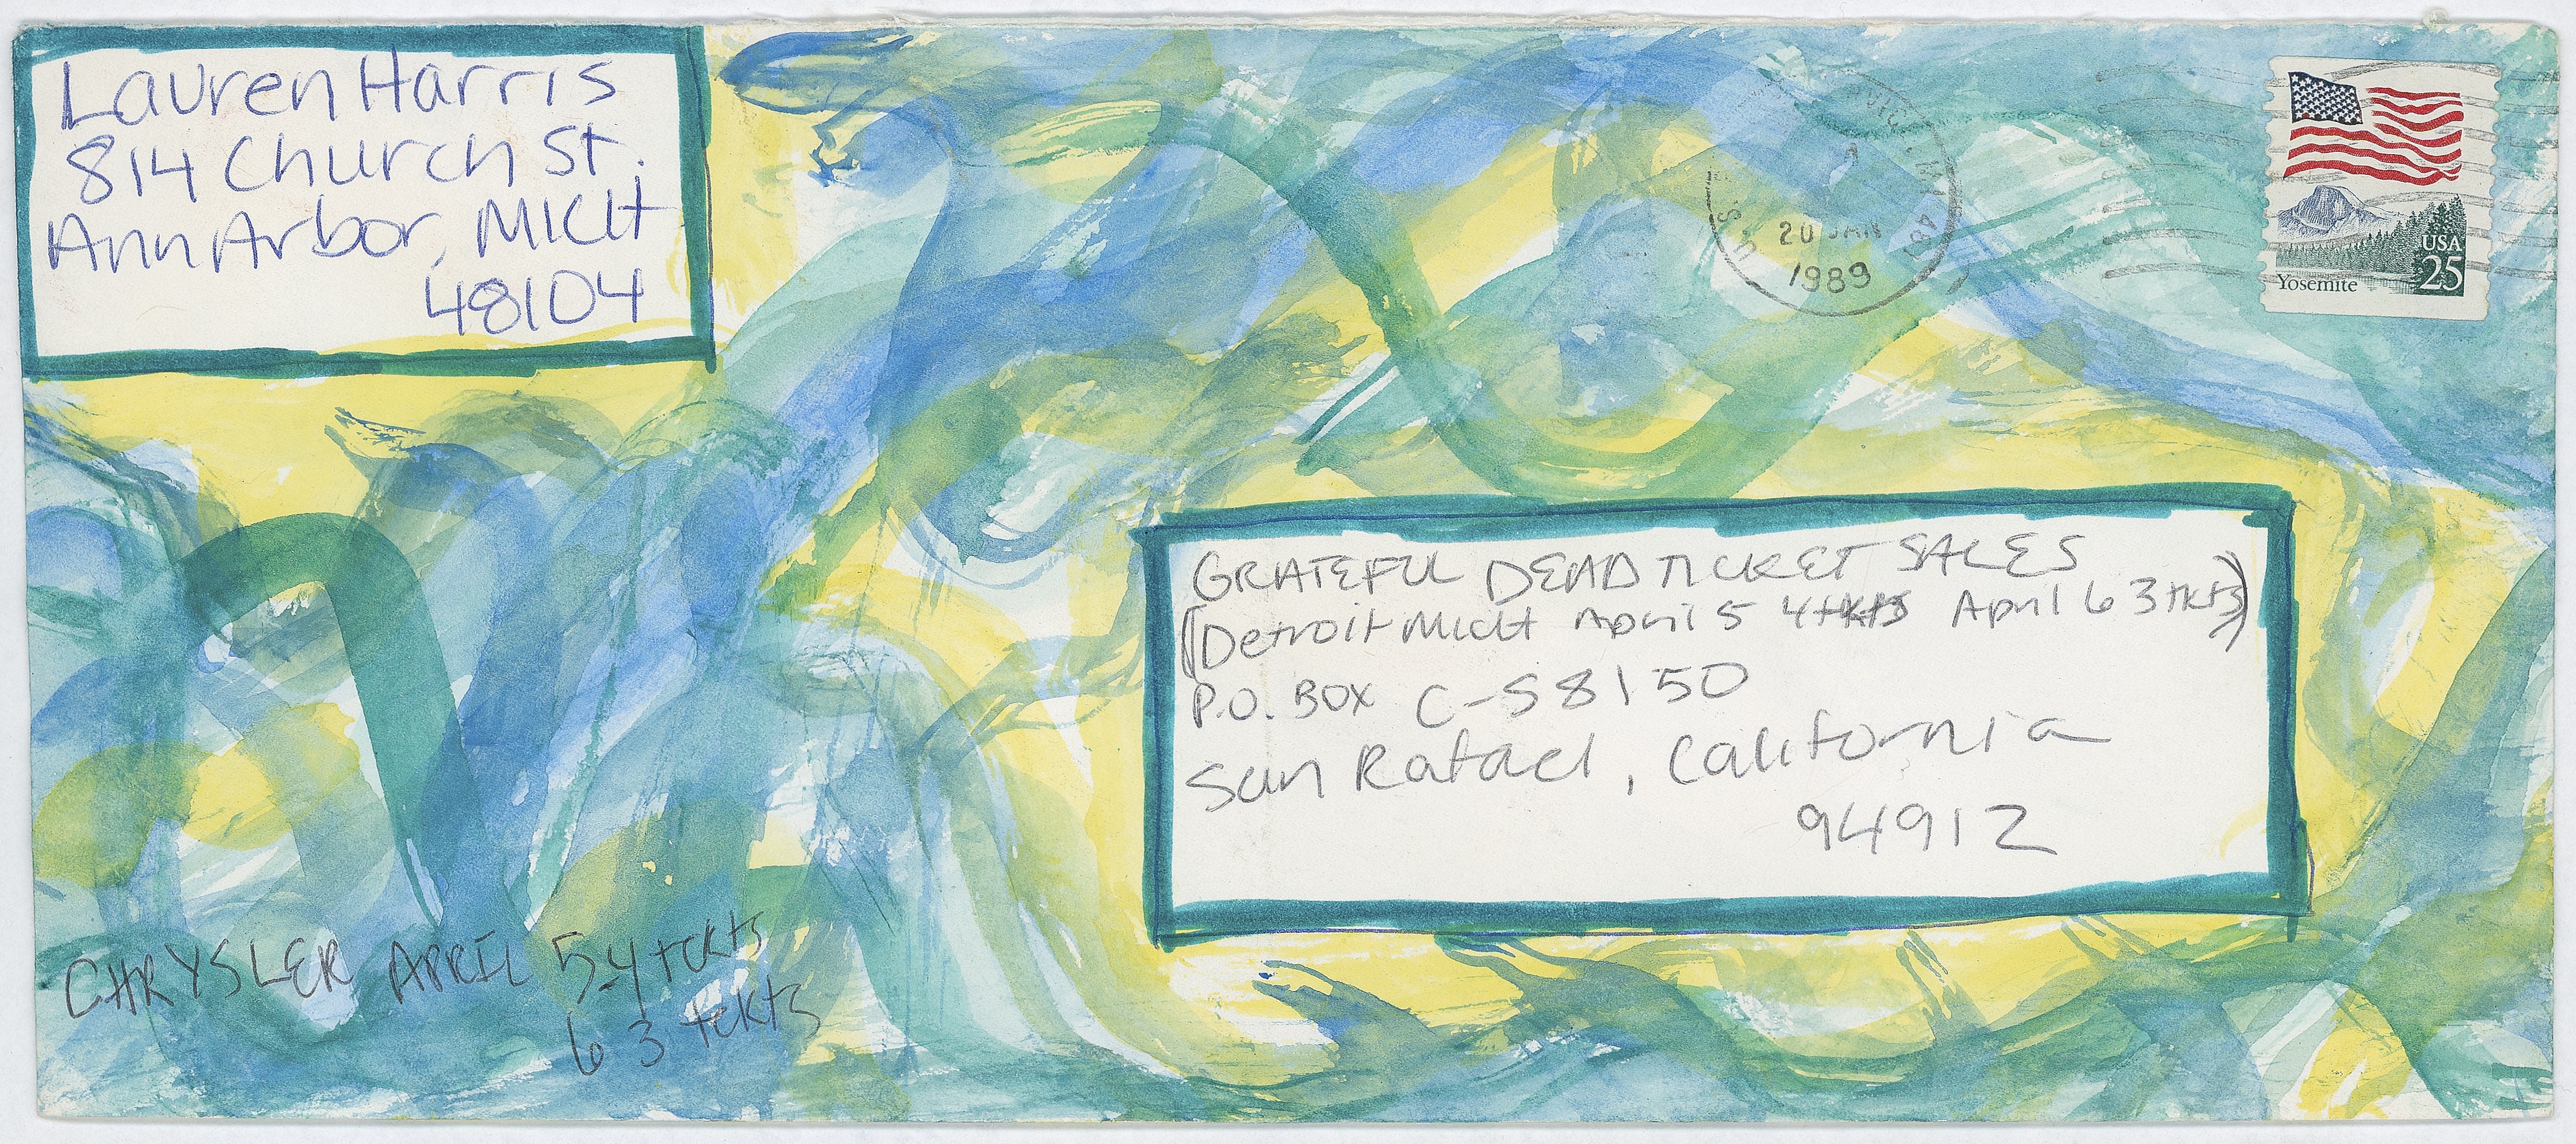 Lauren Harris
814 Church St.
Ann Arbor, MICH
48104
20 JAN
1989
USA
25
Yosemite
GRATEFUL DEAD TICKET SALES
(Detroit MICH April 5 4 tkts April 6 3 tkts)
P.O. BOX C-S8150
San Rafael, California
94912
CHRYSLER APRIL 5-4 tckts
6 3 tckts